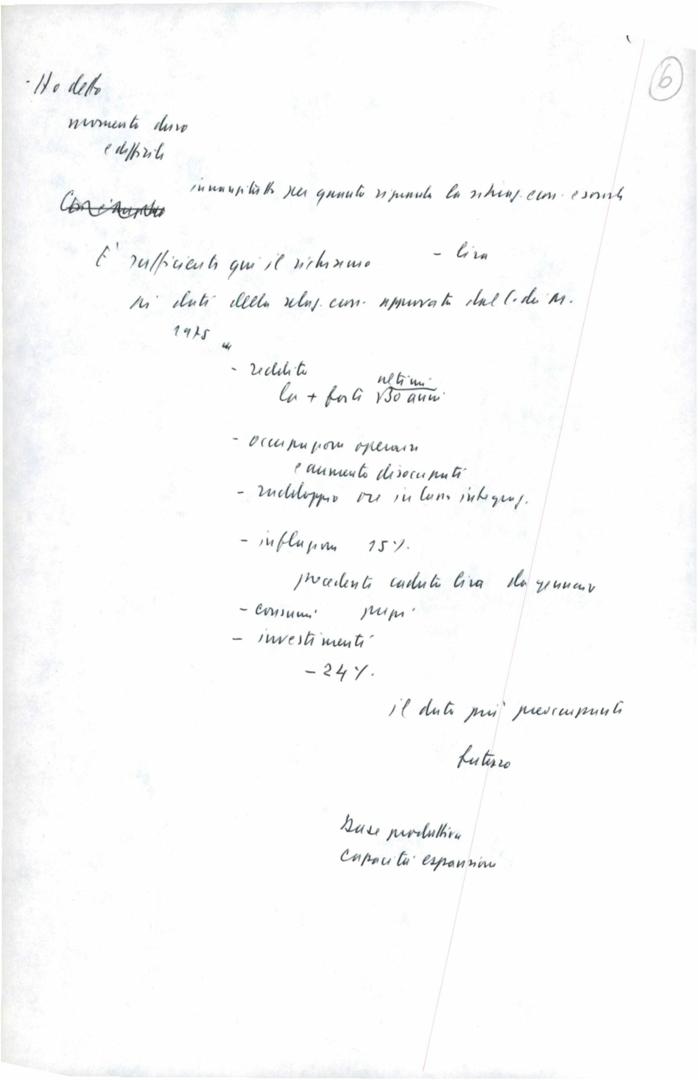 6
- Ho detto
momento duro
e difficile
innanzitutto per quanto riguarda la situaz. econ. e sociale
È sufficiente qui il richiamo
- lira
ai dati della relaz. econ. approvata dal C. dei M.
1975
- reddito
la + forte ultimi 30 anni
- occupazione operaia
e aumento disoccupati
- raddoppio ore in Cassa integraz.
- inflazione 15%.
precedente caduta lira da gennaio
- consumi
- investimenti
- 24%.
il dato più preoccupante
futuro
Base produttiva
capacità espansione